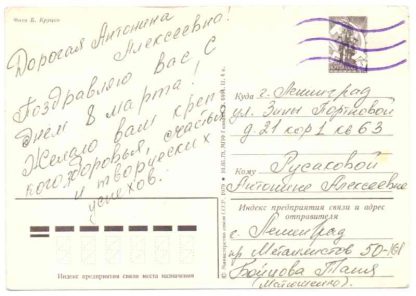 Фото Б. Круцко
Дорогая Антонина
Алексеевна!
Поздравляю Вас с
днём 8 марта!
Желаю вам креп
кого здоровья, счастья
и творческих
успехов.
Куда г. Ленинград
ул. Зины Портновой
д. 21 кор 1 кв 63
Кому Русаковой
Антонине Алексеевне
Индекс предприятия связи и адрес
отправителя
г. Ленинград
пр Металлистов 50-161
Войцова Таня
(Матюшенко)
Индекс предприятия связи места назначения
© Министерство связи СССР, 1979